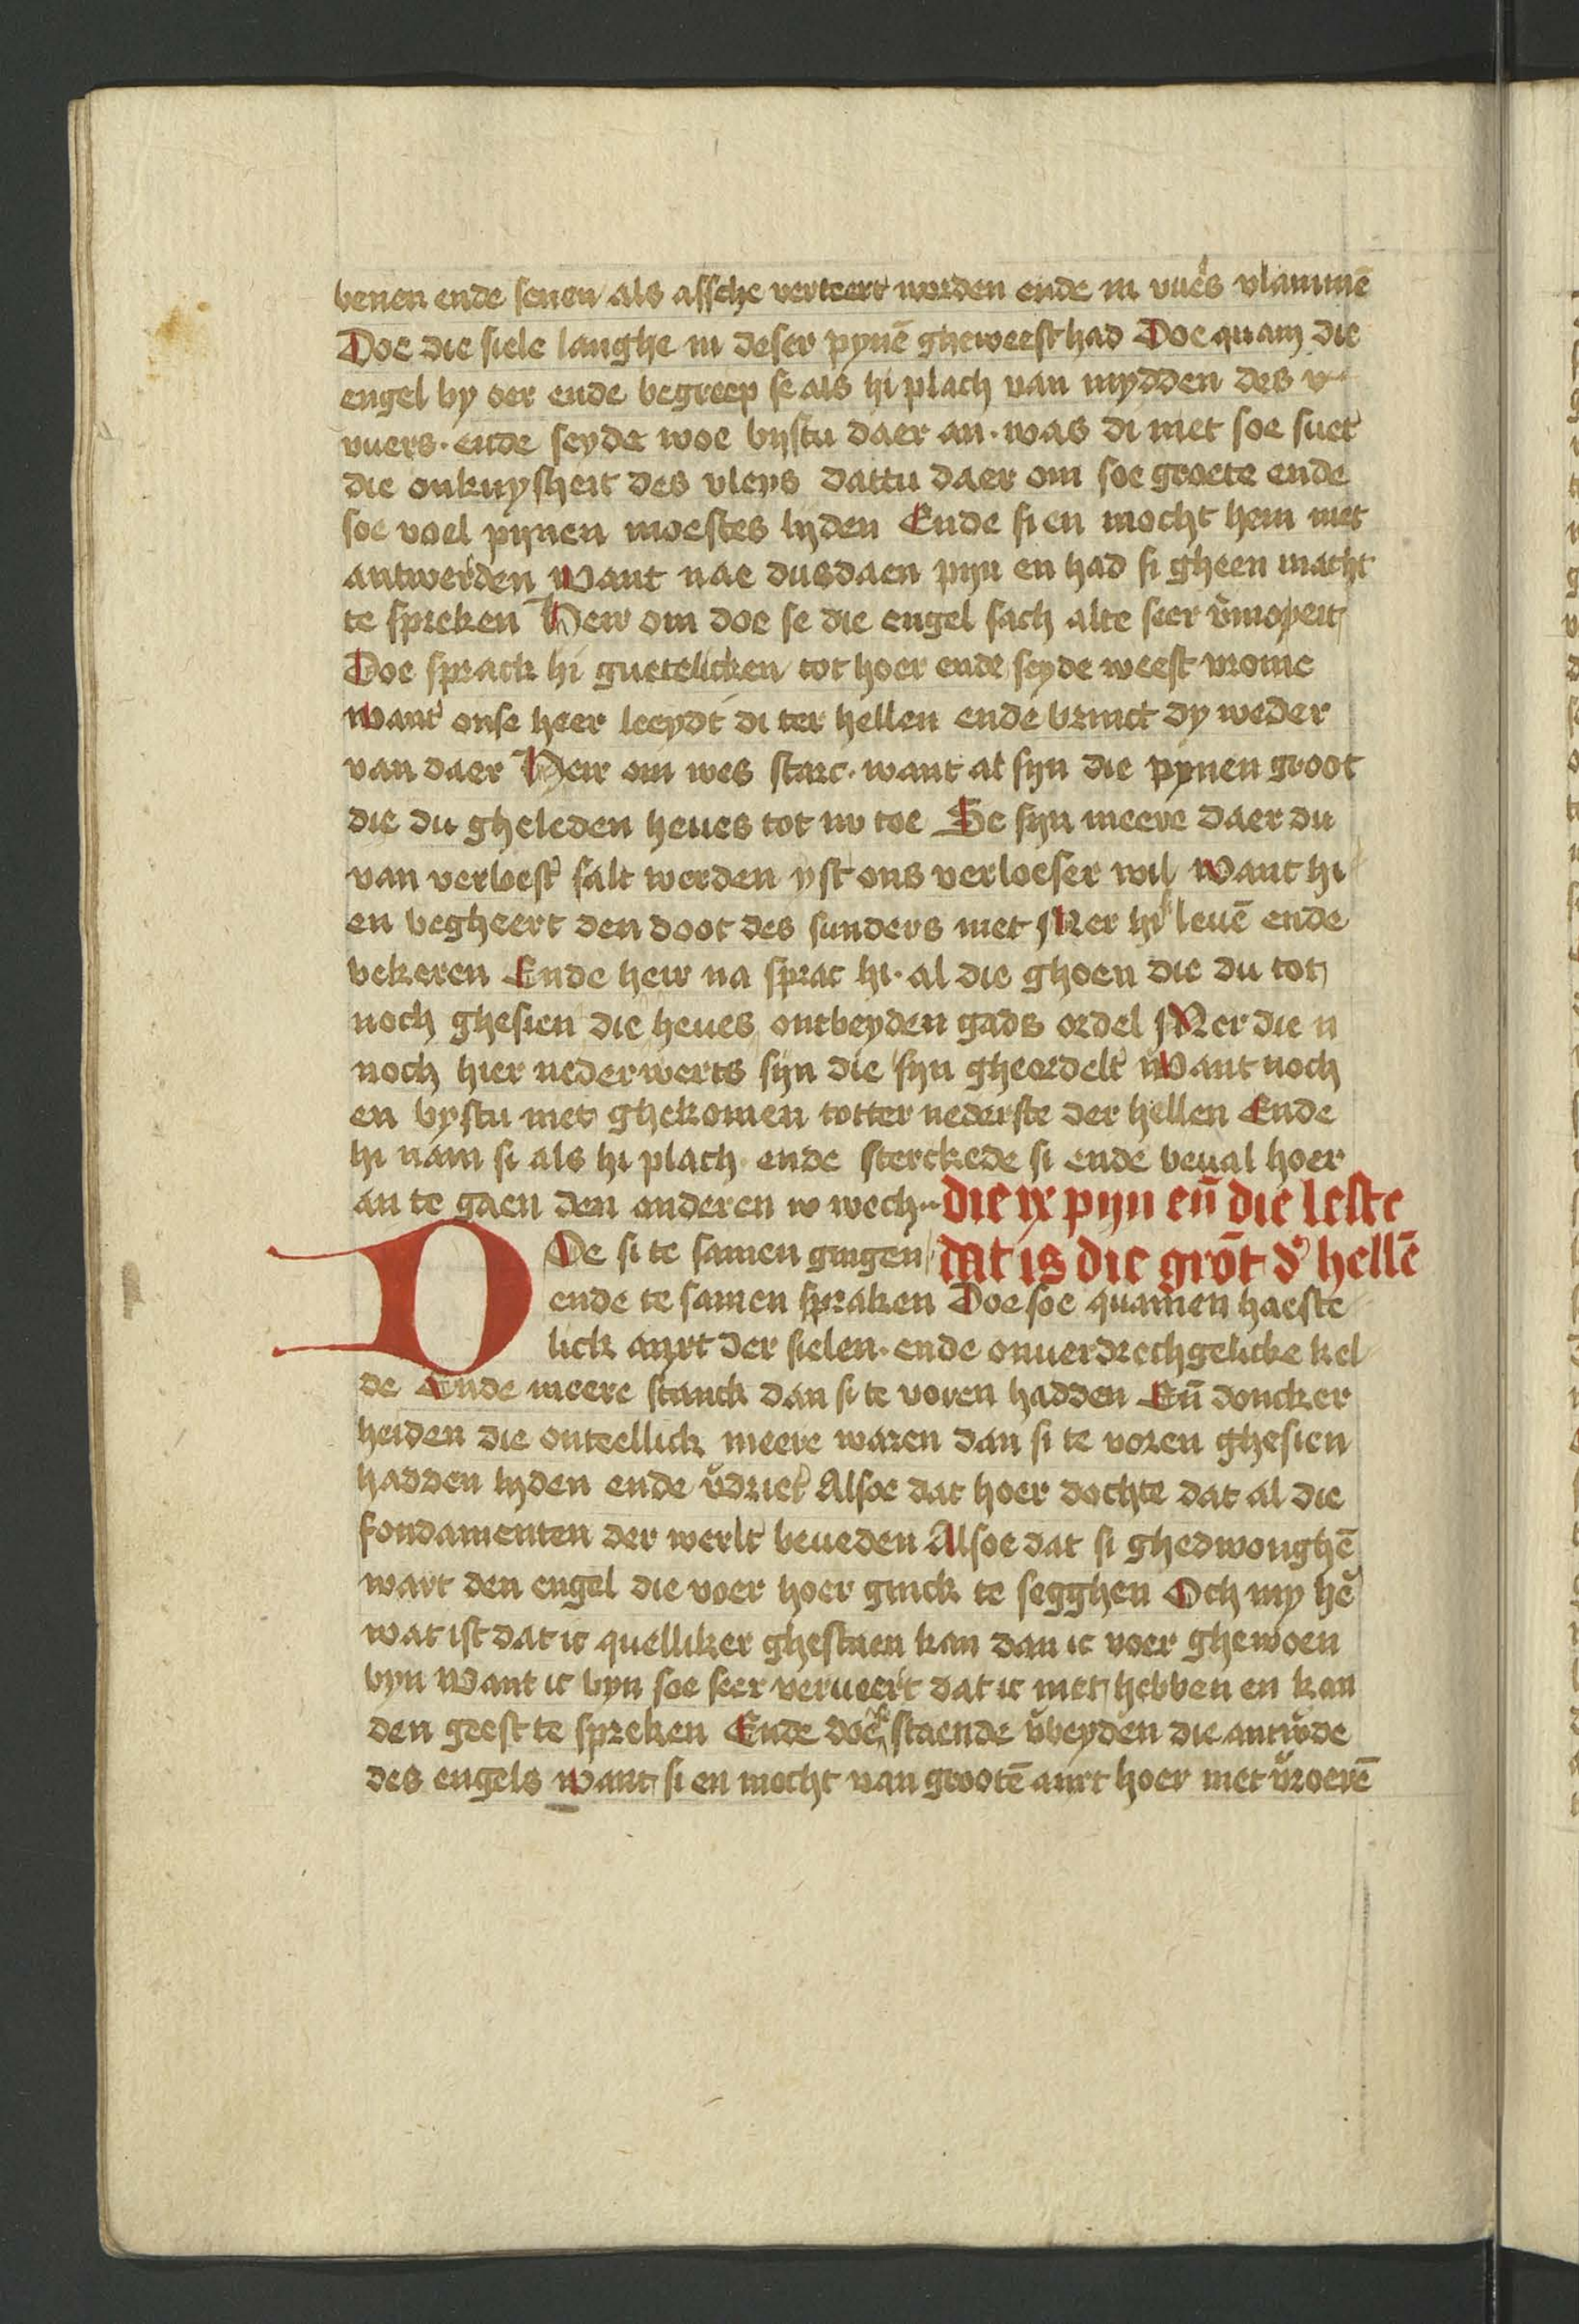 benen ende senen als assche verteert worden ende in vuers vlammē
Doe die siele langhe in deser pynē gheweest had Doe quam die
engel by oer ende begreep se als hi plach van mydden des v
vuers · ende seyde woe bystu daer an · was di niet soe suet
die onkuysheit des vleys dattu daer om soe groete ende
soe voel pijnen moestes lyden Ende si en mocht hem niet
antwerden Want nae dusdaen pijn en had si gheen macht
te spreken Heir om doe se die engel sach alte seer
Doe sprack hi guetelicken tot hoer ende seyde weest vrome
Want onse heer leeydt di ter hellen ende brinct dy weder
van daer Heir om wes starc · want al sijn die pynen groot
die du gheleden heues tot nv toe Se sijn meere daer du
van verloest salt werden yst ons verloeser wil Want hi
en begheert den doot des sunders niet Mer hi leuē ende
bekeren Ende heir na sprac hi · al die ghoen die du tot
noch ghesien die heues ontbeyden gads ordel Mer die n
noch hier nederwerts sijn die sijn gheordelt Want noch
en bystu niet ghekomen totter nederste der hellen Ende
hi nam si als hi plach · ende sterckede si ende beual hoer
an te gaen den anderen w wech · die ix pijn eñ die leste
DOe si te samen gingen dat is die grōt d' hellē
ende te samen spraken Doe soe quamen haeste
lick anxt der sielen · ende onuerdrechgelicke kel
de Ende meere stanck dan si te voren hadden Eñ doncker
heiden die onteellick meere waren dan si te voren ghesien
hadden lyden ende v'driet Alsoe dat hoer dochte dat al die
fondamenten der werlt beueden Alsoe dat si ghedwonghē
wart den engel die voer hoer ginck te segghen Och my he'
wat ist dat ic quelliker ghestaen kan dan ic voer ghewoen
byn Want ic byn soe seer verueert dat ic niet hebben en kan
den geest te spreken Ende doe staende v'beyden die antw'de
des engels Want si en mocht van grootē anxt hoer niet v'roerē